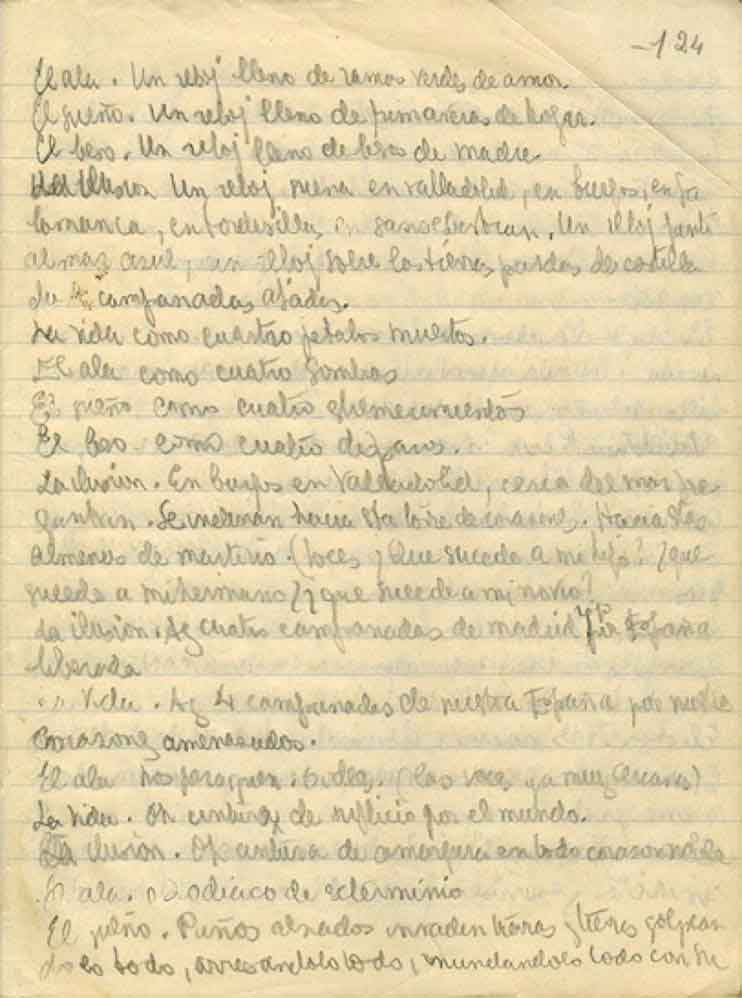 -124
El ala. Un reloj lleno de ramos verdes de amor.
El sueño. Un reloj lleno de primaveras de hogar.
El beso. Un reloj lleno de besos de madre
Un reloj suena en valladolid, en burgos, en sa
lamanca, en tordesillas, en san sebastian. Un reloj junto
al mar azul, un reloj sobre las tierras pardas de castilla
da 4 campanadas
La vida como cuatro petalos muertos.
El ala como cuatro sombras
El sueño como cuatro estremecimientos
El beso como cuatro disparos.
La ilusion. En burgos en Valladolid, cerca del mar pre
guntan. Se inclinan hacia esta torre de corazones. Hacia estas
almenas de martirio. (Voces ¿Que sucede a mi hijo? ¿que
sucede a mi hermano? ¿que sucede a mi novio?
La ilusion. Ay cuatro campanadas de madrid y la España
liberada
Vida. Ay 4 campanadas de nuestra España por nuestros
corazones amenazados.
El ala nos persiguen. (las voces ya muy cercanas)
La Vida. Oh cintura de suplicio por el mundo.
La ilusion. Oh cintura de amargura en todo corazon
El ala. Zodiaco de esterminio
El sueño. Puños alzados invaden golpean
dolo todo, arrasandolo todo, inundandolo todo con su